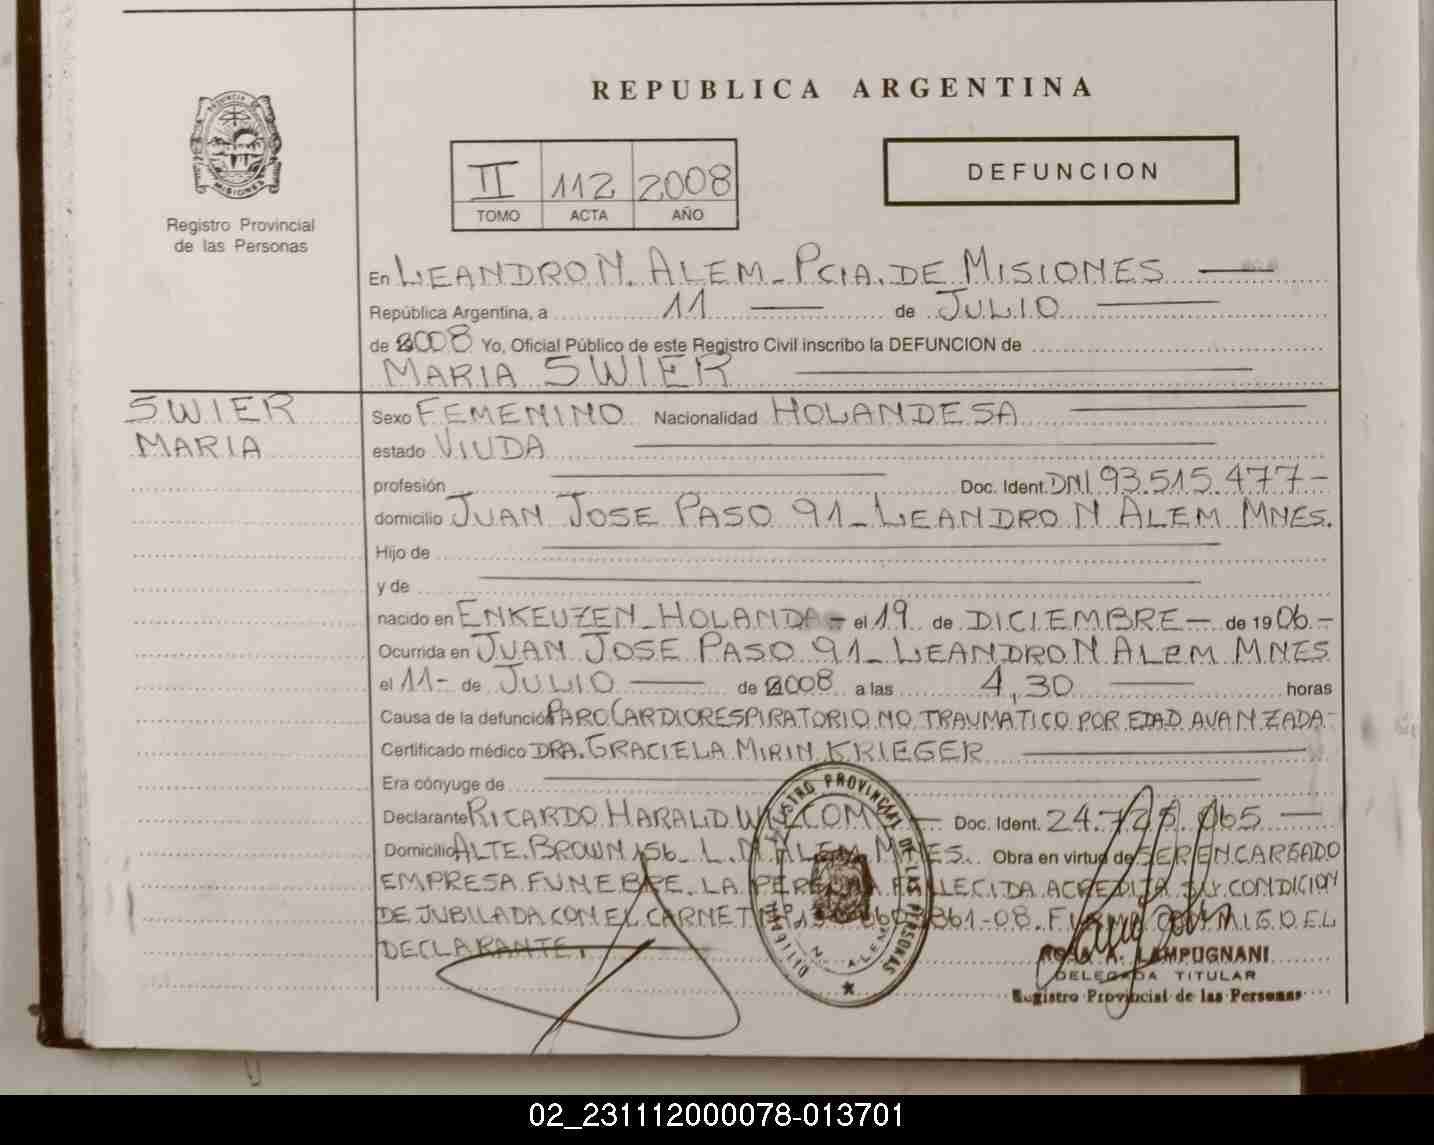 REPUBLICA ARGENTINA
PROVINCIA DE
MISIONES
Registro Provincial
de las Personas
II 112 2008
TOMO ACTA AÑO
DEFUNCION
En LEANDRO N. ALEM - PCIA. DE MISIONES
República Argentina, a 11 de JULIO
de 2008 Yo, Oficial Público de este Registro Civil inscribo la DEFUNCION de
MARIA SWIER
SWIER
MARIA
Sexo FEMENINO Nacionalidad HOLANDESA
estado VIUDA
profesión Doc. Ident. DNI 93.515.477-
domicilio JUAN JOSE PASO 91- LEANDRO N ALEM MNES.
Hijo de
y de
nacido en ENKEUZEN - HOLANDA - el 19 de DICIEMBRE - de 1906.-
Ocurrida en JUAN JOSE PASO 91- LEANDRO N ALEM MNES
el 11- de JULIO de 2008 a las 4,30 horas
Causa de la defunción PARO CARDIORESPIRATORIO NO TRAUMATICO POR EDAD AVANZADA-
Certificado médico DRA. GRACIELA MIRIN KRIEGER
Era cónyuge de
Declarante RICARDO HARALD Doc. Ident.
Domicilio ALTE. BROWN 156- L.N. ALEM MNES. Obra en virtud de SER ENCARGADO
EMPRESA FUNEBRE. LA PERSONA FALLECIDA ACREDITA SU CONDICION
DE JUBILADA CON EL CARNET 861-08. FIRMA CONMIGO EL
DECLARANTE.
REGISTRO PROVINCIAL DE LAS PERSONAS
N. ALEM
A. LAMPUGNANI
DELEGADA TITULAR
Registro Provincial de las Personas
02_231112000078-013701